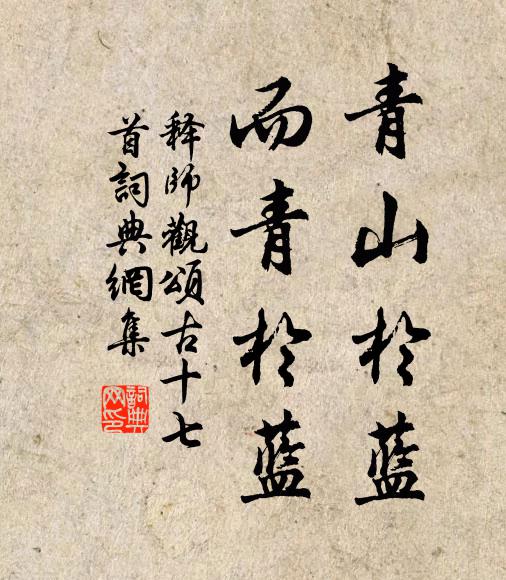 青山於藍
而青於藍
释師觀頌古十七
首詞典網集
詞典
网印